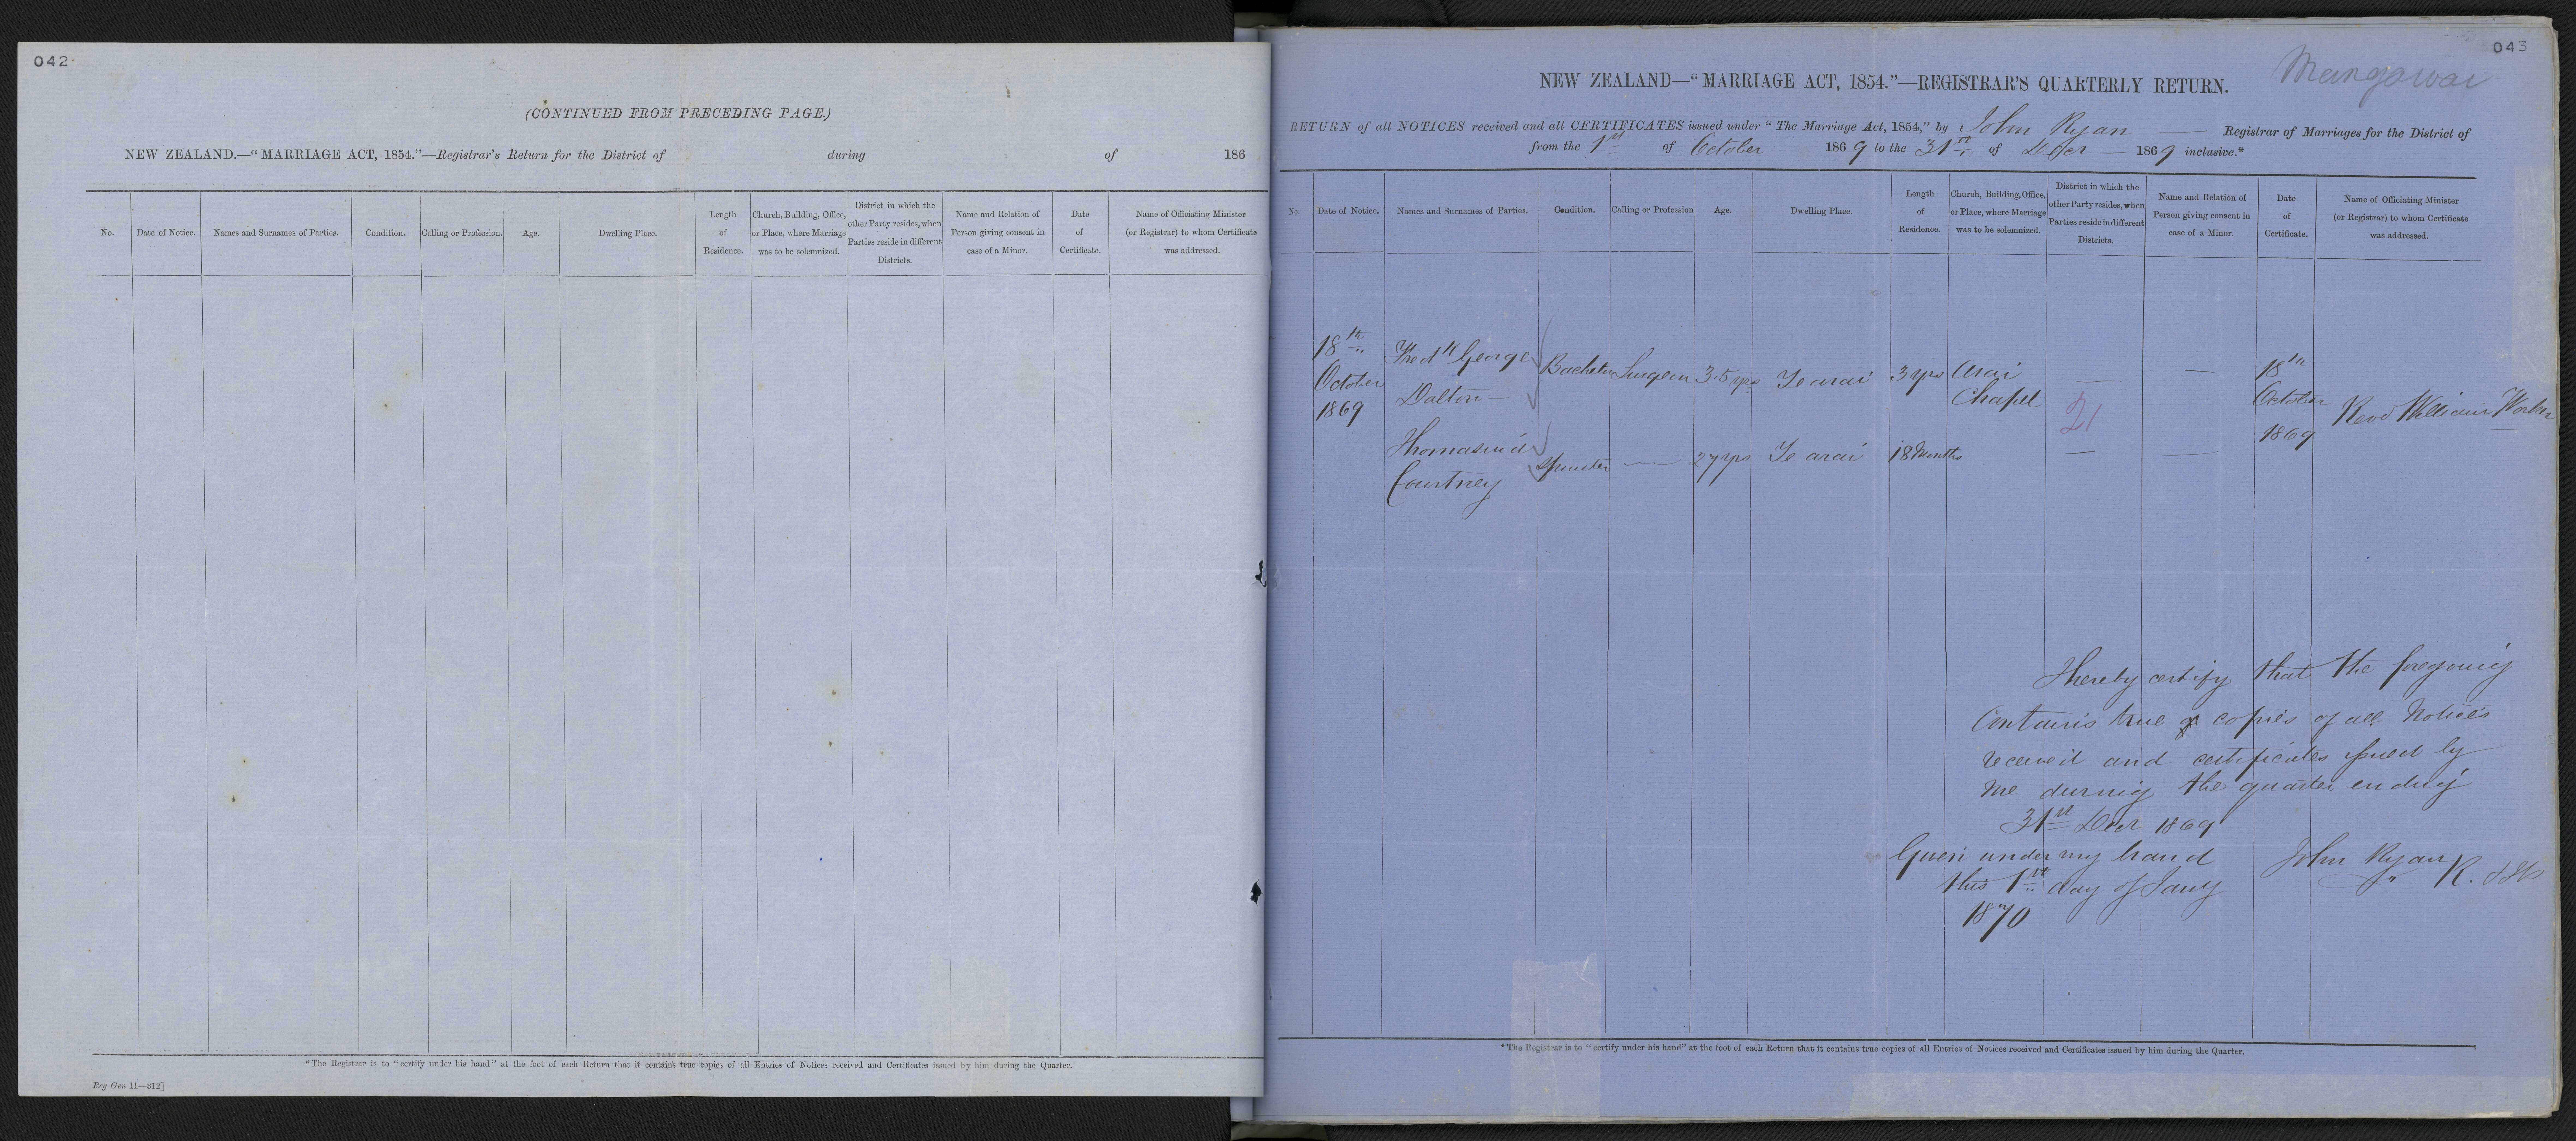 042
(CONTINUED FROM PRECEDING PAGE.)
NEW ZEALAND.—“MARRIAGE ACT, 1854.”—Registrar's Return for the District of during of 186
No.
Date of Notice.
Names and Surnames of Parties.
Condition.
Calling or Profession.
Age.
Dwelling Place.
Length
of
Residence.
Church, Building, Office,
or Place, where Marriage
was to be solemnized.
District in which the
other Party resides, when
Parties reside in different
Districts.
Name and Relation of
Person giving consent in
case of a Minor.
Date
of
Certificate.
Name of Officiating Minister
(or Registrar) to whom Certificate
was addressed.
*The Registrar is to “certify under his hand” at the foot of each Return that it contains true copies of all Entries of Notices received and Certificates issued by him during the Quarter.
Reg Gen 11—312]
043
Mangawai
NEW ZEALAND—“MARRIAGE ACT, 1854.”—REGISTRAR'S QUARTERLY RETURN.
RETURN of all NOTICES received and all CERTIFICATES issued under “The Marriage Act, 1854,” by John Ryan — Registrar of Marriages for the District of
from the 1st of October 1869 to the 31st of Decr — 1869 inclusive.*
No.
Date of Notice.
Names and Surnames of Parties.
Condition.
Calling or Profession
Age.
Dwelling Place.
Length
of
Residence.
Church, Building, Office,
or Place, where Marriage
was to be solemnized.
District in which the
other Party resides, when
Parties reside in different
Districts.
Name and Relation of
Person giving consent in
case of a Minor.
Date
of
Certificate.
Name of Officiating Minister
(or Registrar) to whom Certificate
was addressed.
18th
October
1869
Fredk George
Dalton —
Bachelor
Surgeon
35 yrs
Te arai
3 yrs
Arai
Chapel
—
21
—
18th
October
1869
Revd William Worker
Thomasina
Courtney
Spinster
—
27 yrs
Te arai
18 Months
—
—
I hereby certify that the foregoing
Contains true copies of all Notices
received and certificates issued by
me during the quarter ending
31st Decr 1869
Given under my hand
this 1st day of Jany
1870
John Ryan
R.
*The Registrar is to “certify under his hand” at the foot of each Return that it contains true copies of all Entries of Notices received and Certificates issued by him during the Quarter.